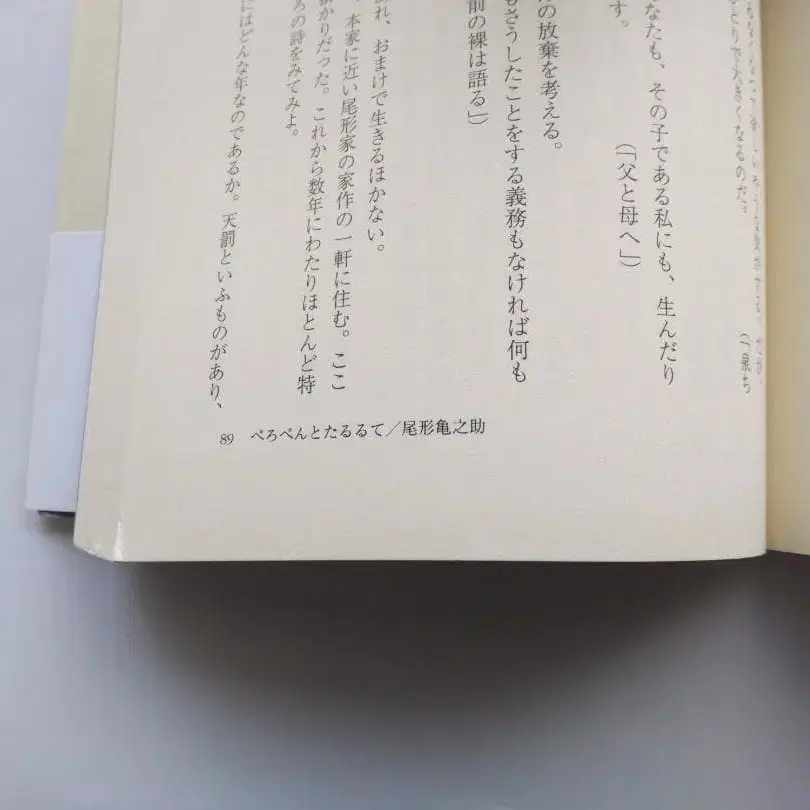 なたも、その子である私にも、生んだり
す。
(「父と母へ」)
の放棄を考える。
もさうしたことをする義務もなければ何も
前の裸は語る」)
れ、おまけで生きるほかない。
本家に近い尾形家の家作の一軒に住む。ここ
かりだった。これから数年にわたりほとんど特
の詩をみてみよ。
にはどんな年なのであるか。天罰といふものがあり、
89 ぺろぺんとたるるて/尾形亀之助